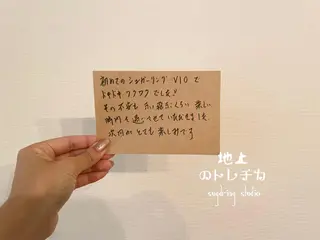 初めてのシュガーリング VIO で
ドキドキ ワクワク でした!
その不安も 吹っ飛ぶくらい 楽しい
時間を過ごさせていただきました
次回が とても 楽しみです
地上
のトレチカ
sugaring studio